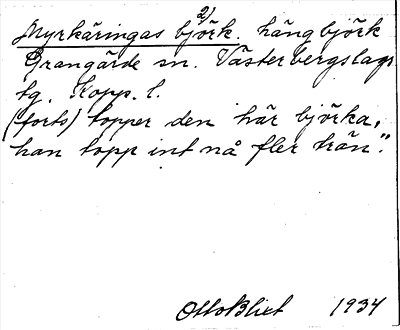 Myrkäringas björk. 2) hängbjörk
Grangärde sn. Västerbergslags
tg. Kopp. l.
(forts) topper den här björka,
han topp int nå fler trän".
Otto Blixt 1934